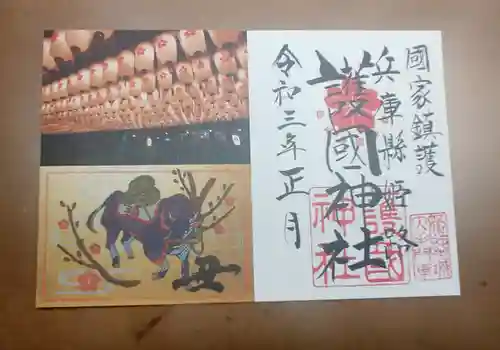 國家鎮護
兵庫縣姫路
護國神社
令和三年正月
丑
護國
神社